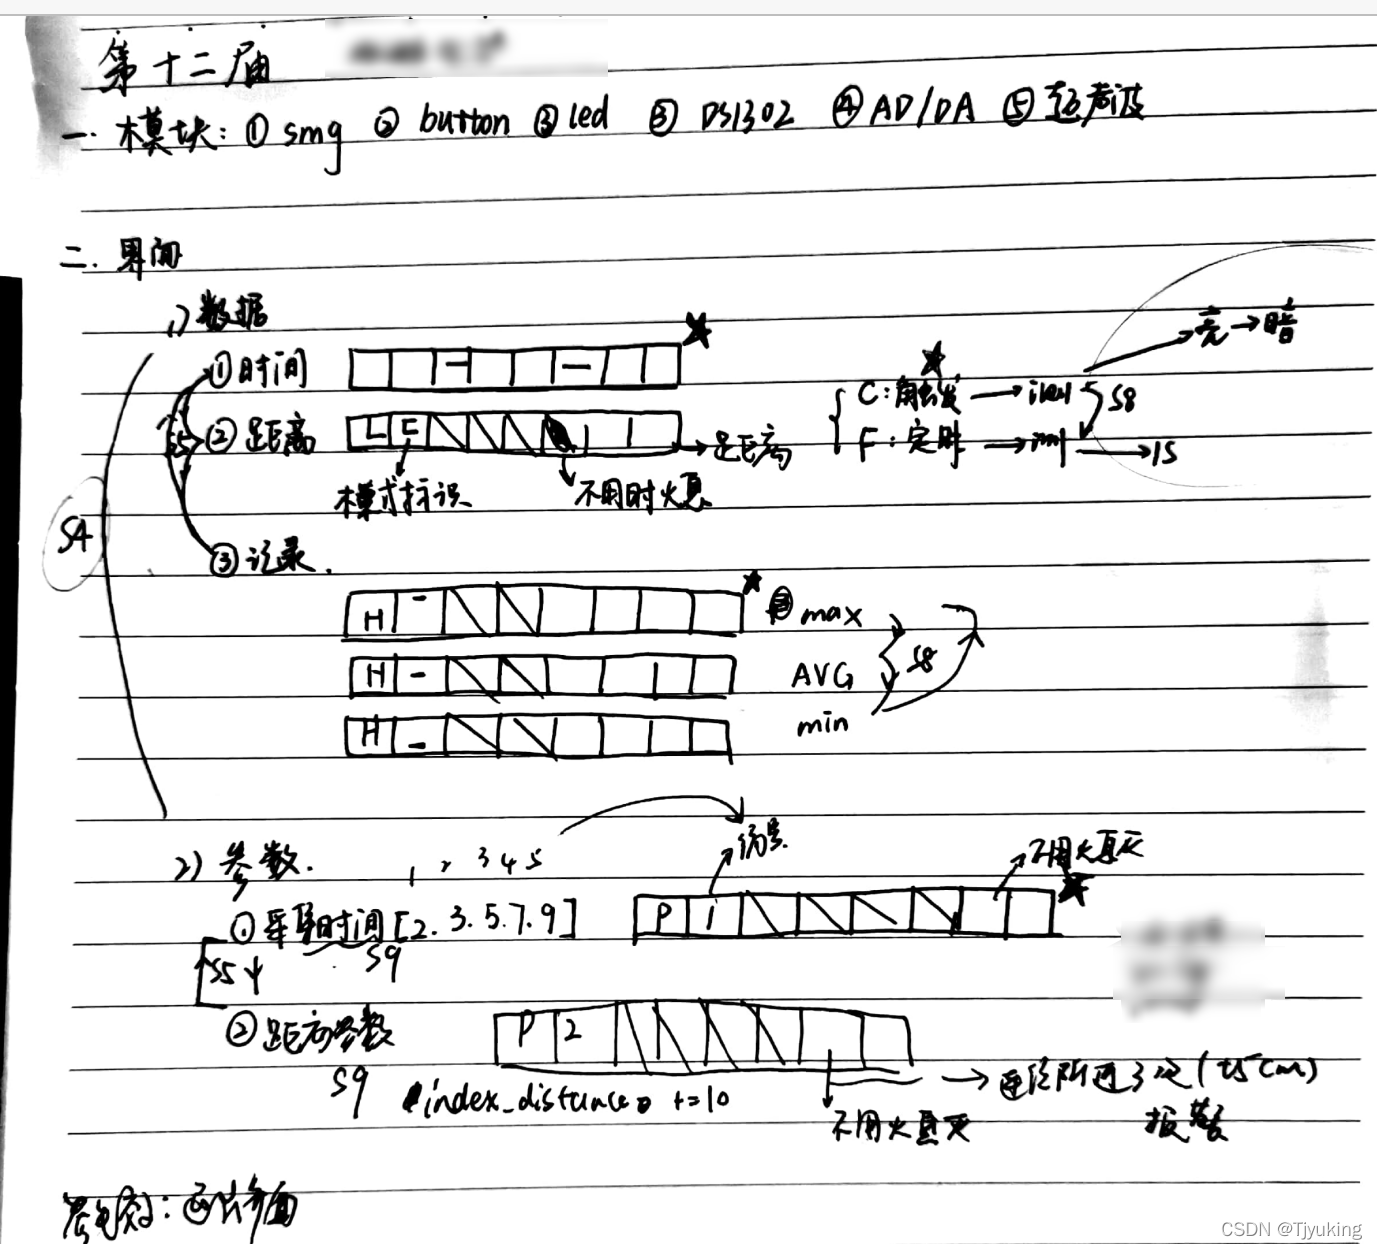 第十二届
一. 模块: ① smg ② button ③ led ③ DS1302 ④ AD/DA ⑤ 超声波
二. 界面
1) 数据
① 时间 — —
亮 → 暗
C: 触发 → S8
② 距离 L C → 距离
F: 定时 → → 1S
S5
模式标识 不用时火息
S4
③ 记录.
H - max
H - AVG S8
H - min
2) 参数. 1 2 3 4 5 编号 不用火息灭
① 采集时间 [2. 3. 5. 7. 9] P 1
S5 S9
② 距离参数 P 2
S9 index_distance += 10 → 连续 3次 (±5cm)
不用火息灭 报警
CSDN @Tjyuking